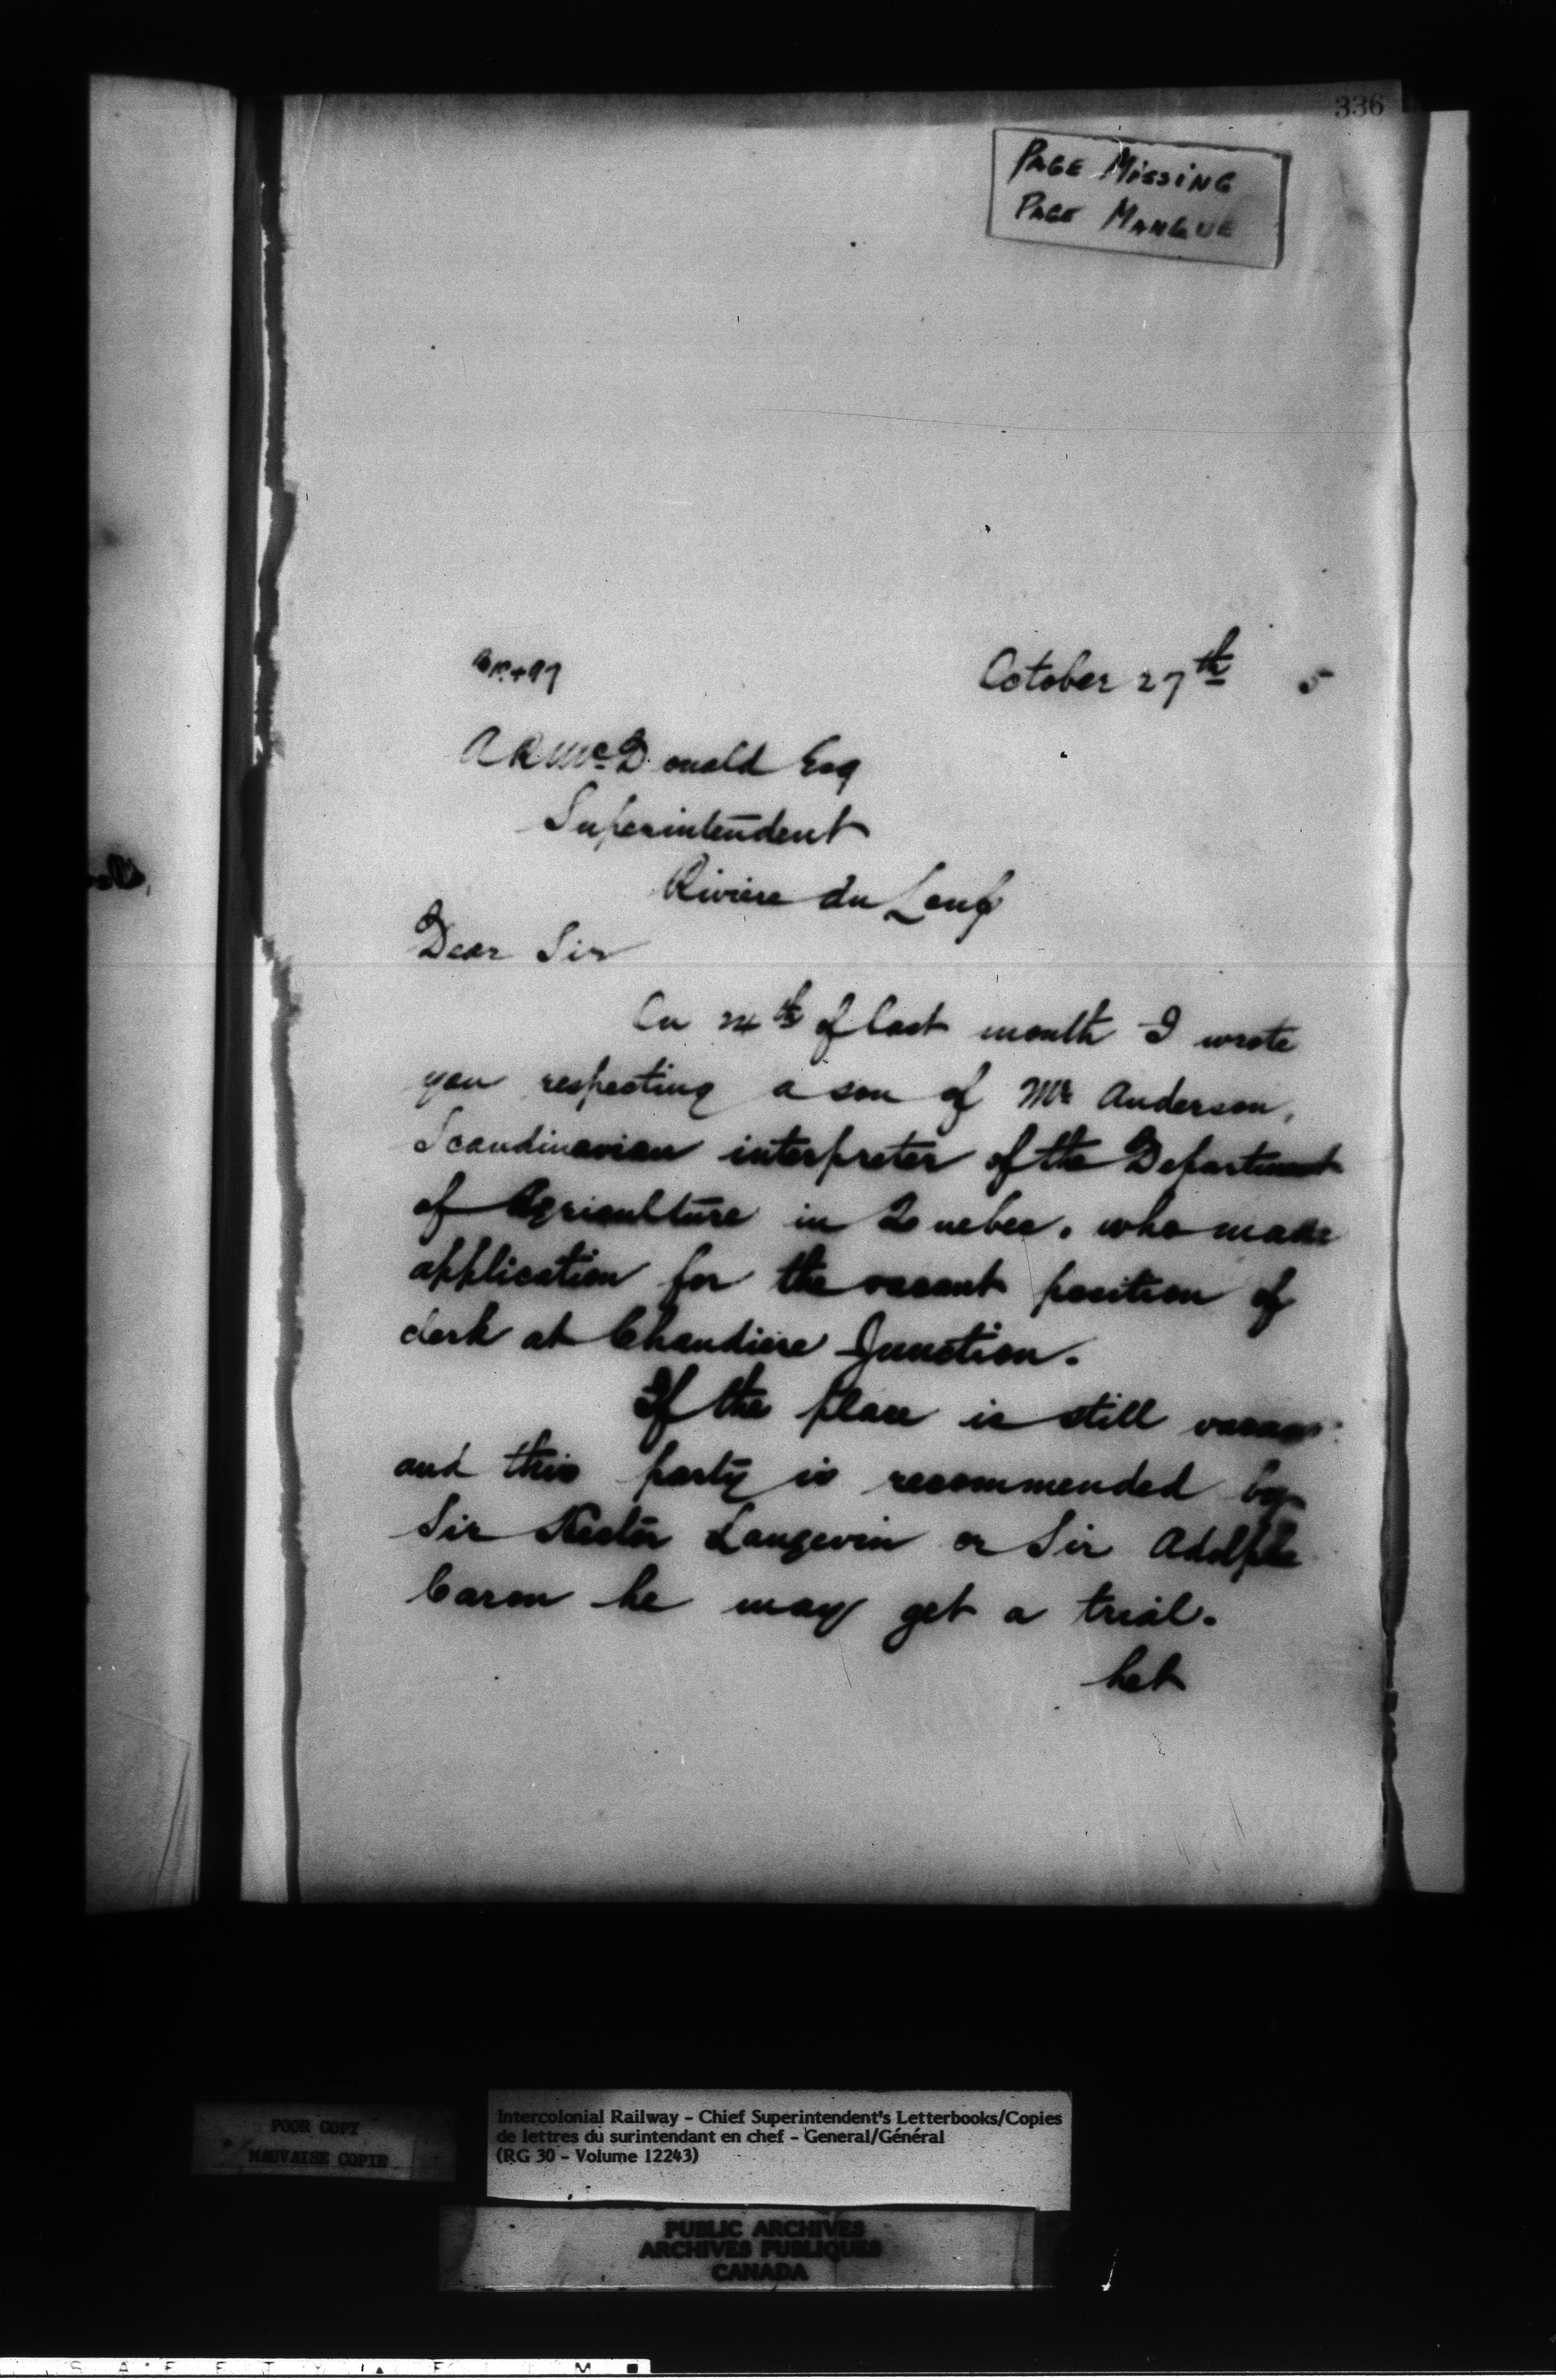 336
PAGE MISSING
PAGE MANQUE
October 27th 5
A R McDonald Esq
Superintendent
Riviere du Loup
Dear Sir
On 24th of last month I wrote
you respecting a son of Mr Anderson,
Scandinavian interpreter of the Department
of Agriculture in Quebec. who made
application for the vacant position of
clerk at Chaudiere Junction.
If the place is still vacant
and this party is recommended by
Sir Hector Langevin or Sir Adolphe
Caron he may get a trial.
Let
POOR COPY
MAUVAISE COPIE
Intercolonial Railway - Chief Superintendent's Letterbooks/Copies
de lettres du surintendant en chef - General/Général
(RG 30 - Volume 12243)
PUBLIC ARCHIVES
ARCHIVES PUBLIQUES
CANADA